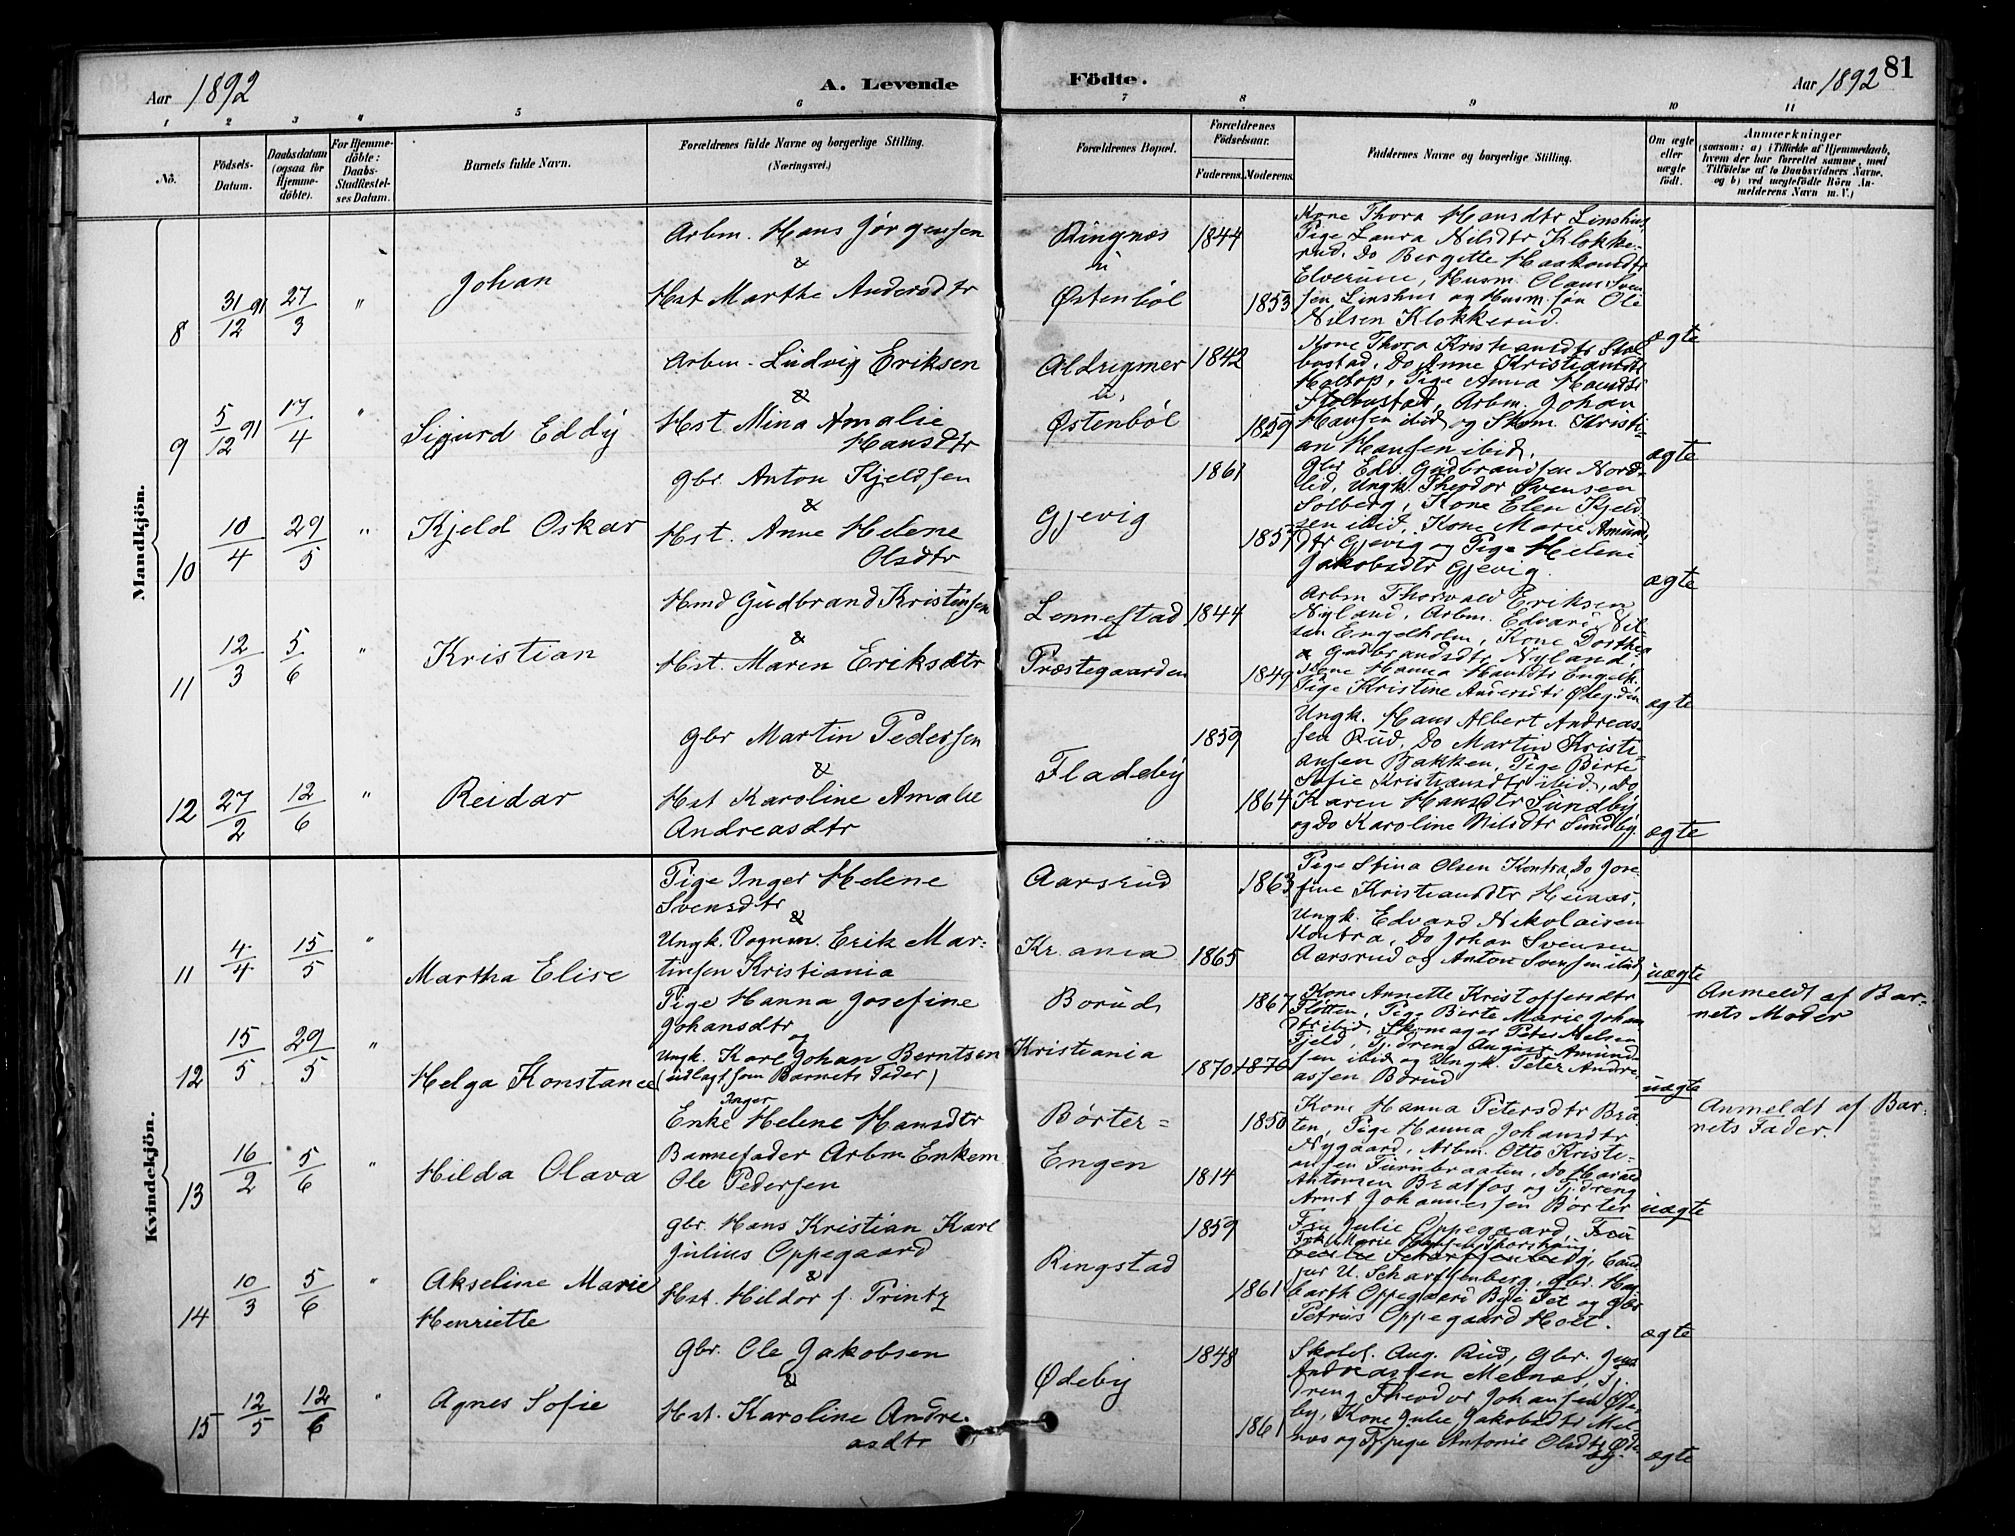 Aar 1892
A. Levende
Födte.
Aar 1892
81
1 2 3 " 5 6 7 8 9 10 11
No.
Födsels-Datum.
Daabsdatum (ogsaa for Hjemme-döbte).
For Hjemme-döbte: Daabs-Stadfæstel-ses Datum.
Barnets fulde Navn.
Forældrenes fulde Navne og borgerlige Stilling.
(Næringsvei.)
Forældrenes Bopæl.
Forældrenes Födselsaar.
Faderens. Moderens.
Faddernes Navne og borgerlige Stilling.
Om ægte eller uægte födt.
Anmærkninger
(saasom: a) i Tilfælde af Hjemmedaab, hvem der har forrettet samme, med Tilföielse af to Daabsvidners Navne. og b) ved uægtefödte Börn An-melderens Navn m. V.)
Mandkjön.
8
31/12 91
27/3
"
Johan
Arbm. Hans Jørgensen
&
Hst Marthe Andersdtr
Ringnæs
u
Østenbøl
1844
1853
Kone Thora Hansdtr Linshus
Pige Laura Nilsdtr Klokke-
rud. Do Bergitte Haakonsdtr
Elverum, Husm. Olaus Sven
sen Linshus og Husm. søn Ole
Nilsen Klokkerud.
ægte
9
5/12 91
17/4
"
Sigurd Eddy
Arbm. Ludvig Eriksen
&
Hst. Mina Amalie
Hansdtr
Aldrigmer
u.
Østenbøl
1842
1859
Kone Thora Kristiansdtr
bustad, Do Anne Kristiansdtr
Holtop, Pige Anna Hansdtr
Arbm. Johan
Hansen ibid og Skom. Kristi-
an Hansen ibid.
ægte
10
10/4
29/5
"
Kjeld Oskar
Gbr. Anton Kjeldsen
&
Hst. Anne Helene
Olsdtr
Gjevig
1861
1857
Gbr Edv. Gudbrandsen Nord-
lid, Ungk. Theodor Svensen
Solberg, Kone Elen Kjeld
sen ibid, Kone Marie Amund
dtr Gjevig og Pige Helene
Jakobsdtr Gjevig.
ægte
11
12/3
5/6
"
Kristian
Hmd Gudbrand Kristensen
&
Hst. Maren Eriksdtr
Lennestad
u
Præstegaarden
1844
1849
Arbm Thorvald Eriksen
Nyland, Arbm. Edvard Nil-
sen Engelholm, Kone Dorthe
a Gudbrandsdtr Nyland.
Kone Hanna Hansdtr Engelh.
Pige Kristine Andersdtr
ægte
12
27/2
12/6
"
Reidar
Gbr Martin Pedersen
&
Hst Karoline Amalie
Andreasdtr
Fladeby
1859
1864
Ungk. Hans Albert Andreas-
sen Rud, Do Martin Kristi-
ansen Bakken, Pige Birte
Sofie Kristiansdtr ibid, Do
Karen Hansdtr Sundby
og Do Karoline Nilsdtr Sundby.
ægte
Kvindekjön.
11
4/4
15/5
"
Martha Elise
Pige Inger Helene
Svensdtr
&
Ungk. Vognm. Erik Mar-
tinsen Kristiania
Aarsrud
Kr. ania
1863
1865
Pige Stina Olsen Kontra, Do Jose
fine Kristiansdtr
Ungk. Edvard Nikolaisen
Kontra, Do Johan Svensen
Aarsrud og Anton Svensen ibid
uægte
Anmeldt af Bar-
nets Moder
12
15/5
29/5
"
Helga Konstance
Pige Hanna Josefine
Johansdtr
og
Ungk. Karl Johan Berntsen
(udlagt som Barnets Fader)
Borud
Kristiania
1867
1870 1870
Kone Annette Kristoffersdtr
Flötten, Pige Birte Marie Johan
dtr ibid, Skomager Peter Nilsen
Fjeld, Tj.dreng August Amund
sen ibid og Ungk. Peter Andre-
assen Borud
uægte
Anmeldt af Bar-
nets Fader.
13
16/2
5/6
"
Hilda Olava
Inger
Enke Helene Hansdtr
Barnefader Arbm Enkem
Ole Pedersen
Børter-
Engen
1850
1814
Kone Hanna Petersdtr Braa
ten, Pige Hanna Johansdtr
Nygaard, Arbm. Otto Kristi-
ansen Furubraaten, Do Harald
Antonsen Bratfos og Tj.dreng
Arnt Johannessen Börter
uægte
14
10/3
5/6
"
Akseline Marie
Henriette
Gbr. Hans Kristian Karl
Julius Oppegaard
&
Hst. Hildor f. Printz
Ringstad
1859
1861
Fru Julie Oppegaard, Frøk
Scharffenberg, Cand
jur U. Scharffenberg, Gbr. Hag
barth Oppegaard Fet og Gbr
Petrus Oppegaard Holt.
ægte
15
12/5
12/6
"
Agnes Sofie
Gbr. Ole Jakobsen
&
Hst. Karoline Andre-
asdtr
Ødeby
1848
1861
Skolel. Aug. Rud, Gbr. Jens
Andreassen Melnæs, Tj.
dreng Theodor Johansen Øde-
by, Kone Julie Jakobsdtr Mel-
næs og Pige Antonie Olsdtr Øde
by.
ægte